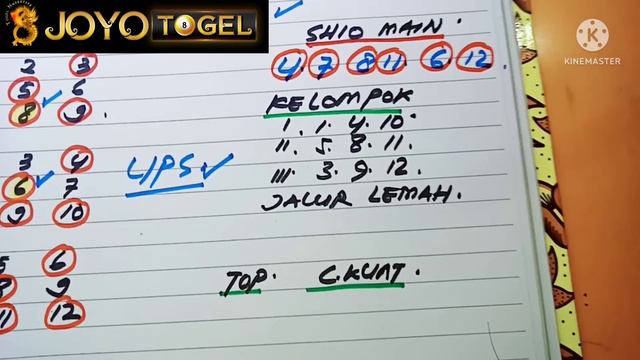 JOYO TOGEL
8
KINEMASTER
SHIO MAIN.
4. 7. 8 11. 6. 12.
KELOMPOK
I. 1. 4. 10.
II. 5. 8. 11.
III. 3. 9. 12.
JALUR LEMAH.
TOP. C.KUAT.
2 3
5 6
8 9.
3 4
6 7
9 10
5 6
8 9
11 12